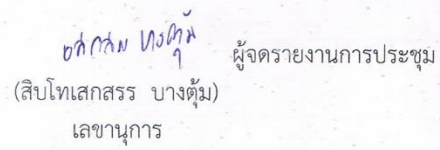 ผู้จดรายงานการประชุม
(สิบโทเสกสรร บางตุ้ม)
เลขานุการ